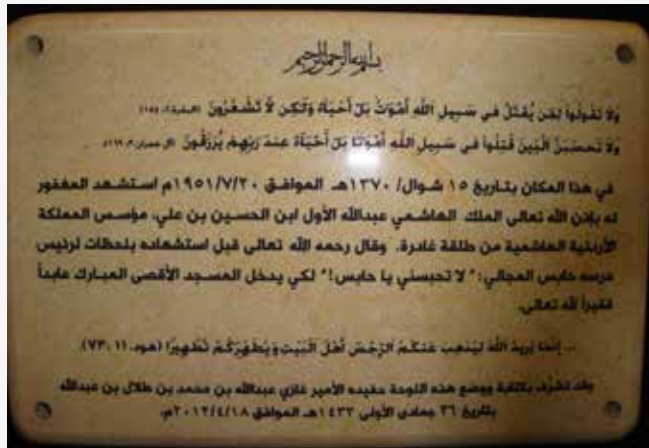 بسم الله الرحمن الرحيم
وَلَا تَقُولُوا لِمَن يُقْتَلُ فِي سَبِيلِ اللَّهِ أَمْوَاتٌ بَلْ أَحْيَاءٌ وَلَٰكِن لَّا تَشْعُرُونَ (البقرة، ١٥٤)
وَلَا تَحْسَبَنَّ الَّذِينَ قُتِلُوا فِي سَبِيلِ اللَّهِ أَمْوَاتًا بَلْ أَحْيَاءٌ عِندَ رَبِّهِمْ يُرْزَقُونَ (آل عمران، ١٦٩)
في هذا المكان بتاريخ ١٥ شوال/ ١٣٧٠هـ الموافق ١٩٥١/٧/٢٠م استشهد المغفور
له بإذن الله تعالى الملك الهاشمي عبدالله الأول ابن الحسين بن علي، مؤسس المملكة
الأردنية الهاشمية من طلقة غادرة. وقال رحمه الله تعالى قبل استشهاده بلحظات لرئيس
حرسه حابس المجالي: "لا تحبسني يا حابس!" لكي يدخل المسجد الأقصى المبارك عابداً
فقيراً لله تعالى.
... إِنَّمَا يُرِيدُ اللَّهُ لِيُذْهِبَ عَنكُمُ الرِّجْسَ أَهْلَ الْبَيْتِ وَيُطَهِّرَكُمْ تَطْهِيرًا (هود، ١١ :٧٣).
وقد تشرّف بكتابة ووضع هذه اللوحة حفيده الأمير غازي عبدالله بن محمد بن طلال بن عبدالله
بتاريخ ٢٦ جمادى الأولى ١٤٣٣هـ الموافق ٢٠١٢/٤/١٨م.